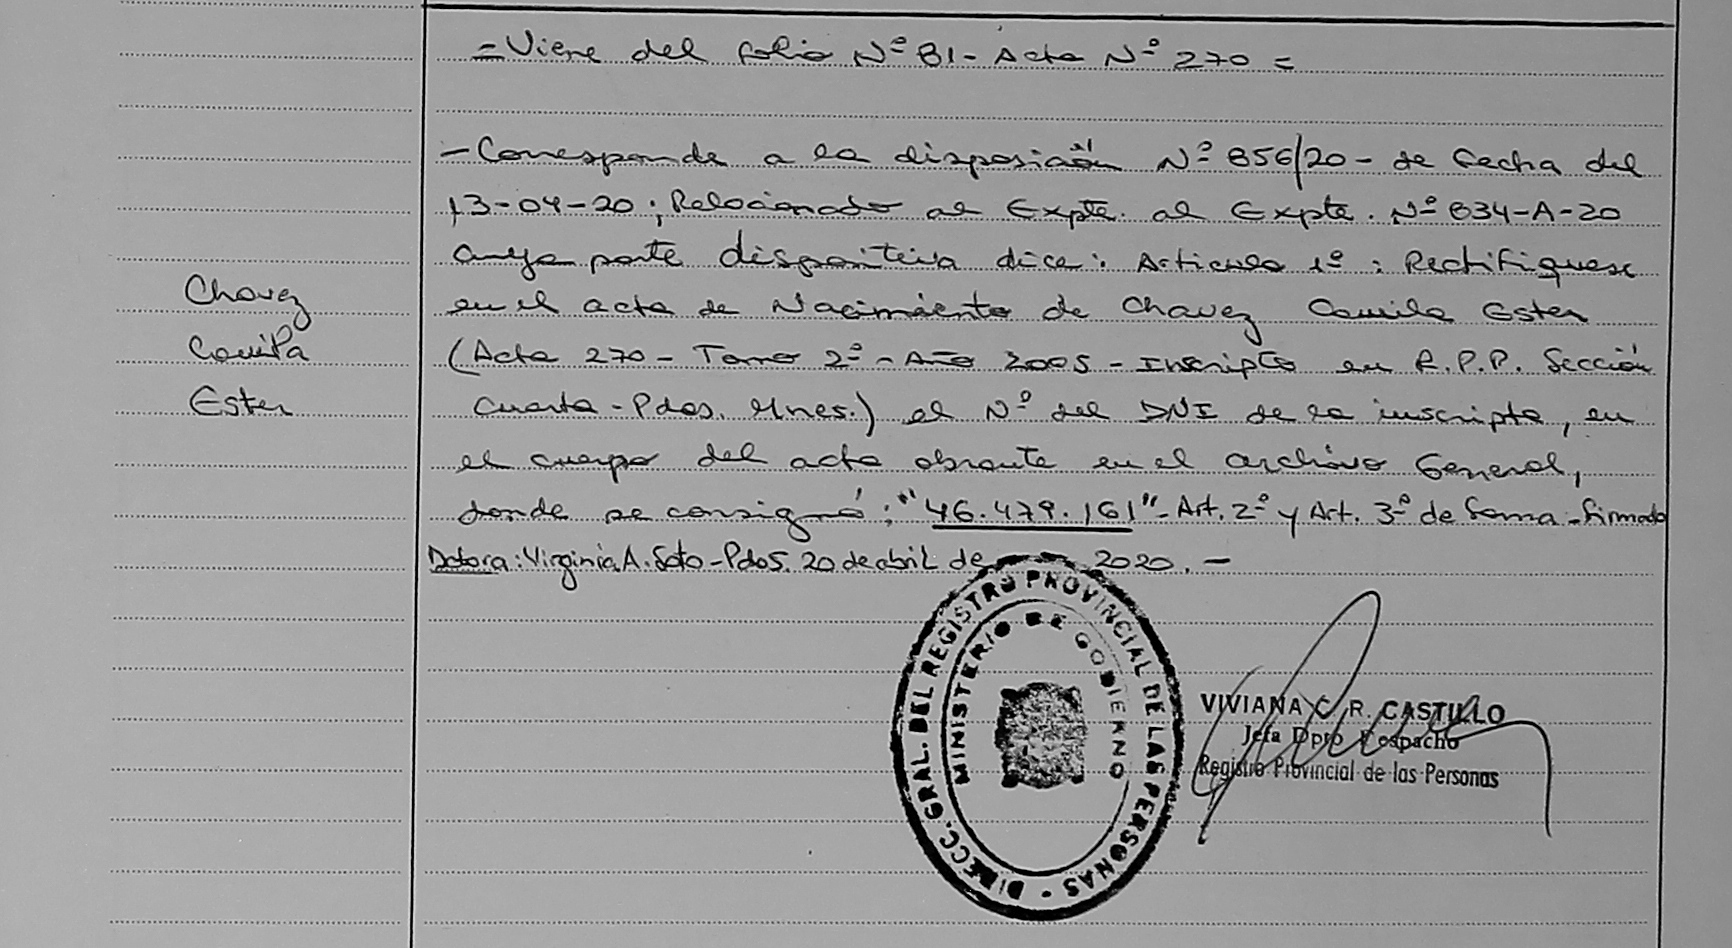 = Viene del folio Nº 81 - Acta Nº 270 =
- Corresponde a la disposición Nº 856/20 - de fecha del
13-04-20; Relacionado al Expte. al Expte. Nº 834-A-20
cuya parte dispositiva dice: Articulo 1º: Rectifiquese
en el acta de Nacimiento de Chavez Camila Ester
(Acta 270 - Tomo 2º - Año 2005 - Inscripta en R.P.P. Sección
Cuarta - Pdas. Mnes.) el Nº del DNI de la inscripta, en
el cuerpo del acta obrante en el archivo General,
donde se consignó: "46.479.161" - Art. 2º y Art. 3º de forma - firmado
Dotora: Virginia A. Soto - Pdas. 20 de abril de 2020. -
Chavez
Camila
Ester
DIRECC. GRAL. DEL REGISTRO PROVINCIAL DE LAS PERSONAS
MINISTERIO DE GOBIERNO
VIVIANA C. R. CASTILLO
Jefa Dpto Despacho
Registro Provincial de las Personas